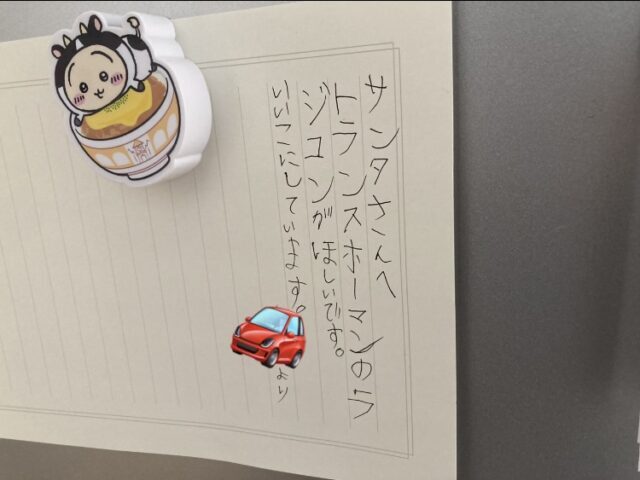 サンタさんへ
トランスホーマンのラ
ジコンがほしいです。
いいこにしています。
より